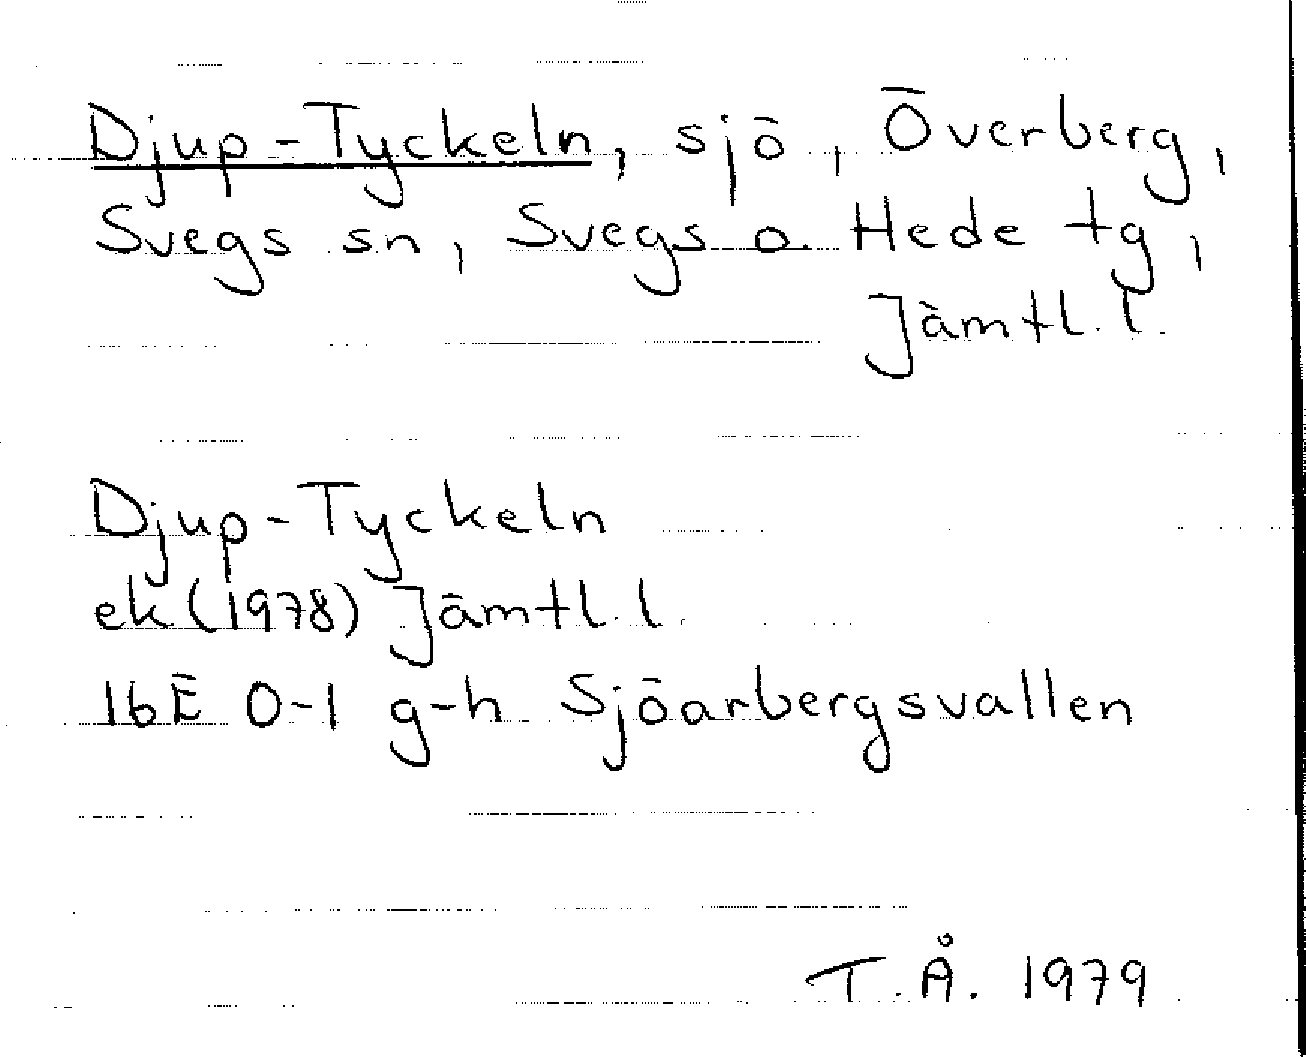 Djup-Tyckeln, sjö, Överberg,
Svegs sn, Svegs o Hede tg,
Jämtl. l.
Djup-Tyckeln
ek (1978) Jämtl. l.
16E 0-1 g-h Sjöarbergsvallen
T.Å. 1979